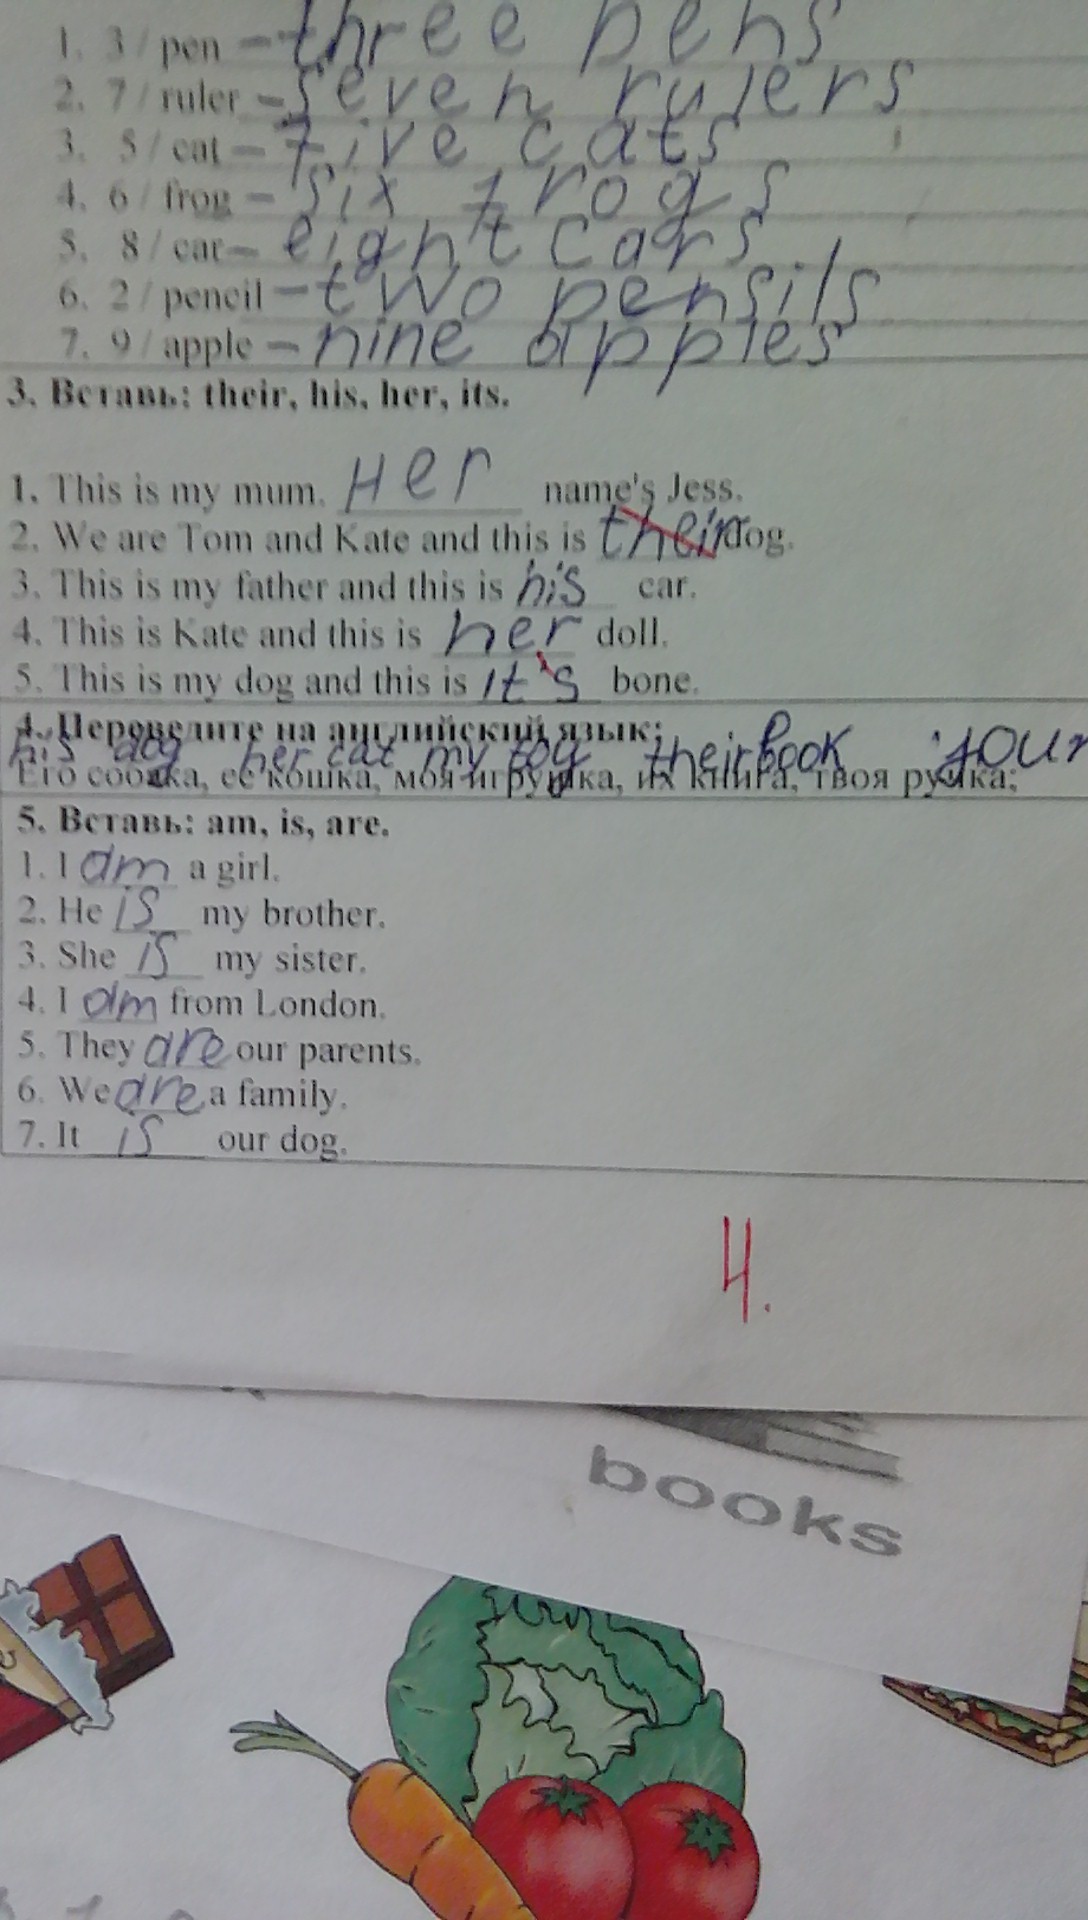 1. 3 / pen – three pens
2. 7 / ruler – seven rulers
3. 5 / cat – five cats
4. 6 / frog – six frogs
5. 8 / car – eight cars
6. 2 / pencil – two pensils
7. 9 / apple – nine apples
3. Вставь: their, his, her, its.
1. This is my mum. Her name's Jess.
2. We are Tom and Kate and this is their dog.
3. This is my father and this is his car.
4. This is Kate and this is her doll.
5. This is my dog and this is it's bone.
4. Переведите на английский язык:
his dog her cat my toy their book your
Его собака, ее кошка, моя игрушка, их книга, твоя ручка;
5. Вставь: am, is, are.
1. I am a girl.
2. He is my brother.
3. She is my sister.
4. I am from London.
5. They are our parents.
6. We are a family.
7. It is our dog.
4.
books